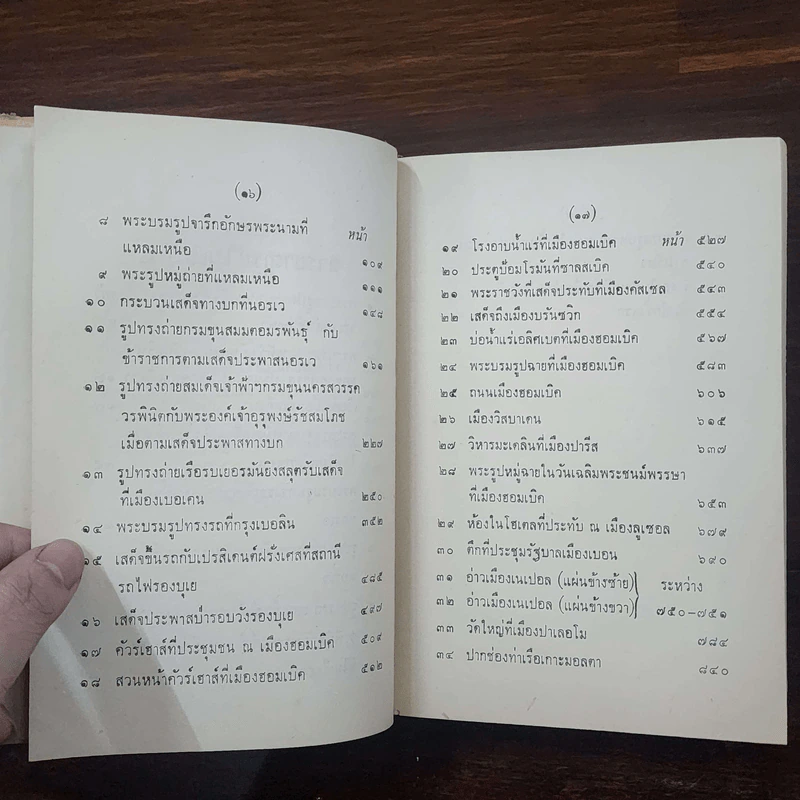 (๑๖)
หน้า
๘ พระบรมรูปจารึกอักษรพระนามที่
แหลมเหนือ ๑๐๙
๙ พระรูปหมู่ถ่ายที่แหลมเหนือ ๑๑๑
๑๐ กระบวนเสด็จทางบกที่นอรเว ๑๔๘
๑๑ รูปทรงถ่ายกรมขุนสมมตอมรพันธุ์ กับ
ข้าราชการตามเสด็จประพาสนอรเว ๑๖๑
๑๒ รูปทรงถ่ายสมเด็จเจ้าฟ้าฯกรมขุนนครสวรรค
วรพินิตกับพระองค์เจ้าอุรุพงษ์รัชสมโภช
เมื่อตามเสด็จประพาสทางบก ๒๒๗
๑๓ รูปทรงถ่ายเรือรบเยอรมันยิงสลุตรับเสด็จ
ที่เมืองเบอเคน ๒๕๐
๑๔ พระบรมรูปทรงรถที่กรุงเบอลิน ๓๕๒
๑๕ เสด็จขึ้นรถกับเปรสิเดนต์ฝรั่งเศสที่สถานี
รถไฟรองบุเย ๔๘๕
๑๖ เสด็จประพาสป่ารอบวังรองบุเย ๔๙๗
๑๗ คัวร์เฮาส์ที่ประชุมชน ณ เมืองฮอมเบิค ๕๐๙
๑๘ สวนหน้าคัวร์เฮาส์ที่เมืองฮอมเบิค ๕๑๒
(๑๗)
หน้า
๑๙ โรงอาบน้ำแร่ที่เมืองฮอมเบิค ๕๒๗
๒๐ ประตูป้อมโรมันที่ซาลสเบิค ๕๔๐
๒๑ พระราชวังที่เสด็จประทับที่เมืองคัสเซล ๕๔๓
๒๒ เสด็จถึงเมืองบรันซวิก ๕๕๔
๒๓ บ่อน้ำแร่เอลิศเบตที่เมืองฮอมเบิค ๕๖๗
๒๔ พระบรมรูปฉายที่เมืองฮอมเบิค ๕๘๓
๒๕ ถนนเมืองฮอมเบิค ๖๐๖
๒๖ เมืองวิสบาเดน ๖๑๕
๒๗ วิหารมะเดลินที่เมืองปารีส ๖๓๗
๒๘ พระรูปหมู่ฉายในวันเฉลิมพระชนม์พรรษา
ที่เมืองฮอมเบิค ๖๕๓
๒๙ ห้องในโฮเตลที่ประทับ ณ เมืองลูเซอล ๖๗๙
๓๐ ตึกที่ประชุมรัฐบาลเมืองเบอน ๖๙๐
๓๑ อ่าวเมืองเนเปอล (แผ่นข้างซ้าย) ระหว่าง
๓๒ อ่าวเมืองเนเปอล (แผ่นข้างขวา) ๗๕๐-๗๕๑
๓๓ วัดใหญ่ที่เมืองปาเลอโม ๗๘๔
๓๔ ปากช่องท่าเรือเกาะมอลตา ๘๔๐